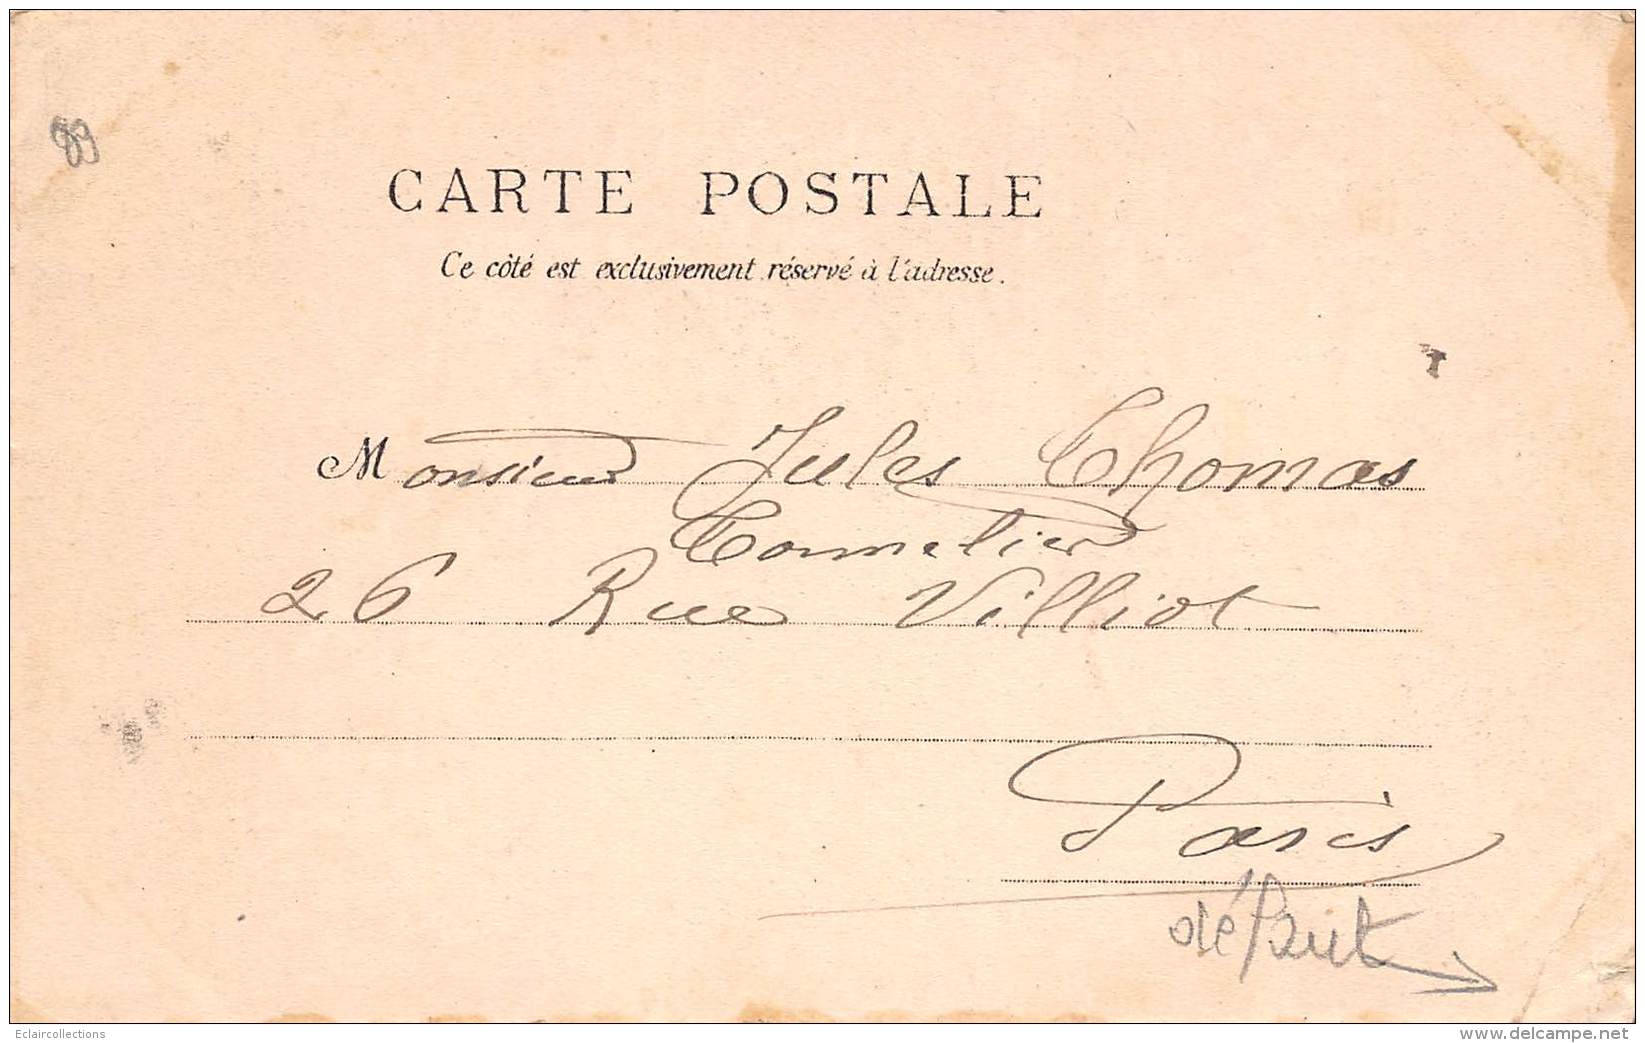 89
CARTE POSTALE
Ce côté est exclusivement réservé à l'adresse.
Monsieur Jules Thomas
Tonnelier
26 Rue Villiot
Paris
défaut
Eclaircollections
www.delcampe.net